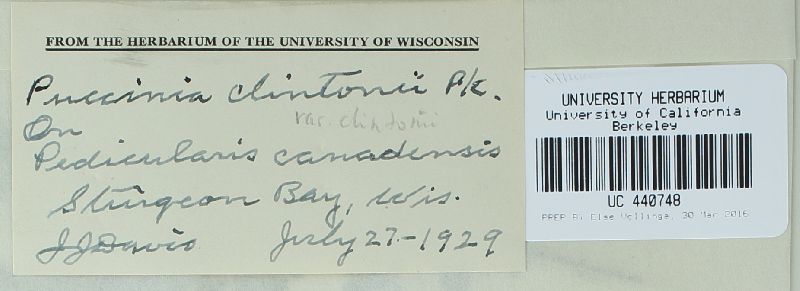 FROM THE HERBARIUM OF THE UNIVERSITY OF WISCONSIN
Puccinia clintonii Pk.
var. clintonii
On
Pedicularis canadensis
Sturgeon Bay, Wis.
JJDavis July 27-1929
UNIVERSITY HERBARIUM
University of California
Berkeley
UC 440748
PREP By Else Vellinga, 30 Mar 2016